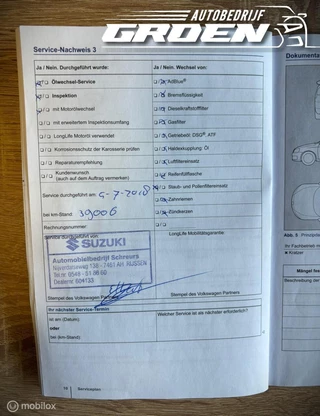 AUTOBEDRIJF
GROEN
Service-Nachweis 3
Ja / Nein. Durchgeführt wurde:
Ölwechsel-Service
Inspektion
mit Motorölwechsel
mit erweitertem Inspektionsumfang
LongLife Motoröl verwendet
Korrosionsschutz der Karosserie prüfen
Reparaturempfehlung
Kundenwunsch
(auch auf dem Auftrag vermerken)
Service durchgeführt am
bei km-Stand 39006
Rechnungsnummer:
Service durchgeführt von:
SUZUKI
Automobielbedrijf Schreurs
Stempel des Volkswagen Partners
Ihr nächster Service-Termin
ist am (Datum):
oder
bei (km-Stand):
Ja / Nein. Wechsel von:
AdBlue®
Bremsflüssigkeit
Dieselkraftstofffilter
Gasfilter
Getriebeöl DSG®, ATF
Haldexkupplung Öl
Luftfiltereinsatz
Reifenfüllflasche
Staub- und Pollenfiltereinsatz
Zahnriemen
Zündkerzen
LongLife Mobilitätsgarantie
Stempel des Volkswagen Partners
Welcher Service ist als nächster erforderlich?
Serviceplan
Dokumenta
Abb. 5
Ihr Fachbetrieb m
Kratzer
Mängel fes
© Marktplaats